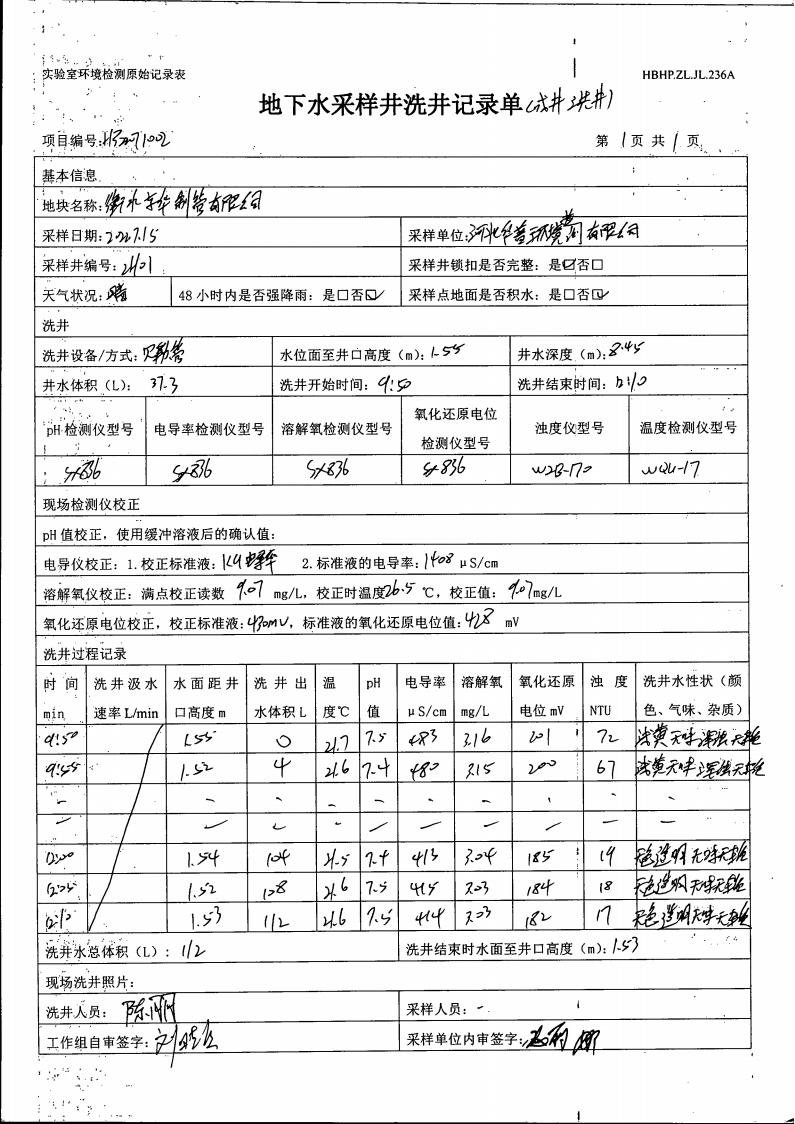 实验室环境检测原始记录表
HBHP.ZL.JL.236A
地下水采样井洗井记录单(成井洗井)
项目编号:
第 1 页 共 1 页
基本信息
地块名称: 衡水京华制管有限公司
采样日期:
采样单位: 河北华普环境 有限公司
采样井编号: 2H01
采样井锁扣是否完整: 是☑否□
天气状况: 晴
48 小时内是否强降雨: 是□否☑
采样点地面是否积水: 是□否☑
洗井
洗井设备/方式: 贝勒管
水位面至井口高度 (m): 1.55
井水深度 (m): 8.45
井水体积 (L): 37.3
洗井开始时间: 9:50
洗井结束时间: 12:10
pH 检测仪型号 电导率检测仪型号 溶解氧检测仪型号 氧化还原电位检测仪型号 浊度仪型号 温度检测仪型号
SX836 SX836 SX836 SX836 WZB-170 WQG-17
现场检测仪校正
pH 值校正, 使用缓冲溶液后的确认值:
电导仪校正: 1.校正标准液: 2.标准液的电导率: 1408 μS/cm
溶解氧仪校正: 满点校正读数 9.07 mg/L, 校正时温度 26.5 ℃, 校正值: 9.07 mg/L
氧化还原电位校正, 校正标准液: 430mV, 标准液的氧化还原电位值: 428 mV
洗井过程记录
时间 min 洗井汲水速率 L/min 水面距井口高度 m 洗井出水体积 L 温度℃ pH 值 电导率 μS/cm 溶解氧 mg/L 氧化还原电位 mV 浊度 NTU 洗井水性状（颜色、气味、杂质）
9:50 1.55 0 21.7 7.5 483 3.16 201 72 浅黄无味浑浊无杂质
9:55 1.52 4 21.6 7.4 480 3.15 200 67 浅黄无味浑浊无杂质
- - - - - - - - - -
- - - - - - - - - -
12:00 1.54 104 21.5 7.4 413 3.04 185 19 无色透明无味无杂质
12:05 1.52 108 21.6 7.5 415 3.03 184 18 无色透明无味无杂质
12:10 1.53 112 21.6 7.5 414 3.03 182 17 无色透明无味无杂质
洗井水总体积 (L): 112
洗井结束时水面至井口高度 (m): 1.53
现场洗井照片:
洗井人员:
采样人员: -
工作组自审签字:
采样单位内审签字: